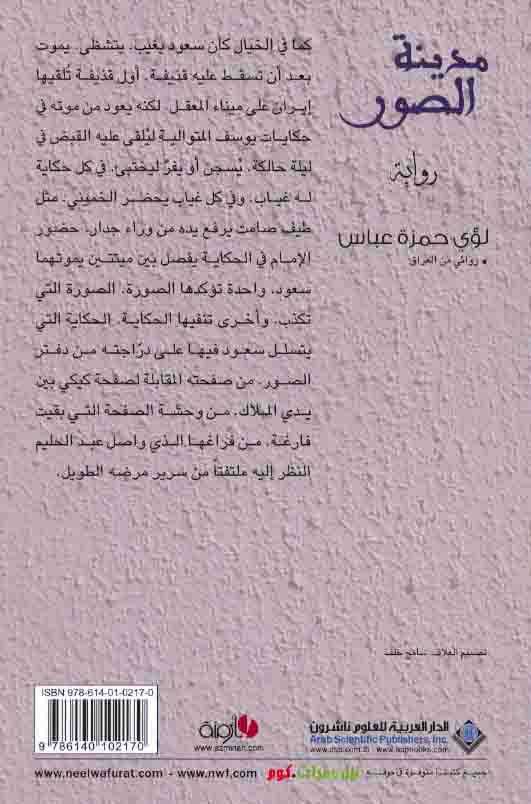 مدينة
الصور
رواية
لؤي حمزة عباس
• روائي من العراق
كما في الخيال كان سعود يغيب. يتشظى. يموت
بعد أن تسقط عليه قذيفة. أول قذيفة تلقيها
إيران على ميناء المعقل. لكنه يعود من موته في
حكايات يوسف المتوالية ليُلقى عليه القبض في
ليلة حالكة. يُسجن أو يفرّ ليختبئ. في كل حكاية
له غياب. وفي كل غياب يحضر الخميني. مثل
طيف صامت يرفع يده من وراء جدار. حضور
الإمام في الحكاية يفصل بين ميتتين يموتهما
سعود. واحدة تؤكدها الصورة. الصورة التي
تكذب. وأخرى تنفيها الحكاية. الحكاية التي
يتسلل سعود فيها على درّاجته من دفتر
الصور. من صفحته المقابلة لصفحة كيكي بين
يدي الملاك. من وحشة الصفحة التي بقيت
فارغة. من فراغها الذي واصل عبد الحليم
النظر إليه ملتفتاً من سرير مرضه الطويل.
تصميم الغلاف: سامح خلف
ISBN 978-614-01-0217-0
9 786140 102170
أزمنة
www.azminah.com
الدار العربية للعلوم ناشرون
Arab Scientific Publishers, Inc.
www.asp.com.lb - www.aspbooks.com
جميع كتبنا متوفرة في موقع
نيل وفرات.كوم
www.neelwafurat.com - www.nwf.com